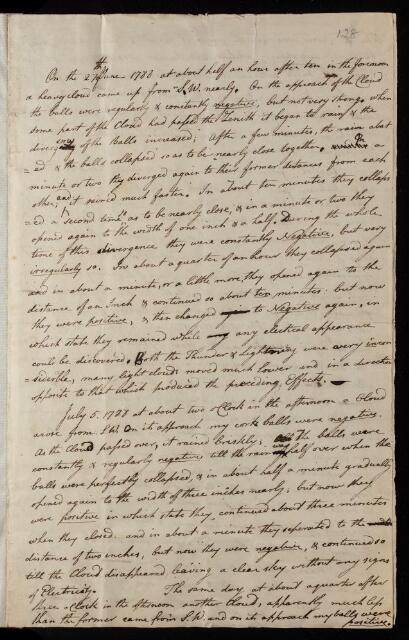 128
On the 27th June 1788 at about half an hour after ten in the forenoon
a heavy cloud came up from S.W. nearly. On the approach of the Cloud
the balls were regularly & constantly negative, but not very strong, when
some part of the Cloud had passed the Zenith it began to rain & the
divergency of the balls increased; After a few minutes, the rain abat
=ed & the balls collapsed so as to be nearly close together, a
minute or two they diverged again to their former distances from each
other, and it rained much faster. In about ten minutes they collaps
=ed a second time as to be nearly close, & in a minute or two they
opened again to the width of one inch & a half. During the whole
time of this divergence they were constantly Negative, but very
irregularly so. In about a quarter of an hour they collapsed again
and in about a minute, or a little more, they opened again to the
distance of an Inch & continued so about ten minutes: but now
they were positive, & then changed to Negative again, in
which state they remained while any electical appearance
could be discovered. Both the Thunder & Lightning were very incon
=siderible, many light clouds moved much lower and in a direction
opposite to that which produced the preceding Effects.
July 5. 1788 at about two o Clock in the afternoon a Cloud
arose from S.W. On it approach my cork balls were negative.
As the Cloud passed over, it rained briskly; the balls were
constantly & regularly negative till the rain was half over when the
balls were perfectly collapsed, & in about half a minute gradually
opened again to the width of three inches nearly; but now they
were positive in which state they continued about three minutes
when they closed. and in about a minute they seperated to the
distance of two inches, but now they were negative, & continued so
till the Cloud disappeared leaving a clear sky without any signs
of Electricity. The same day at about a quarter after
three o Clock in the Afternoon another Cloud, apparently much less
than the former came from S.W. and on it approach my balls were
positive.